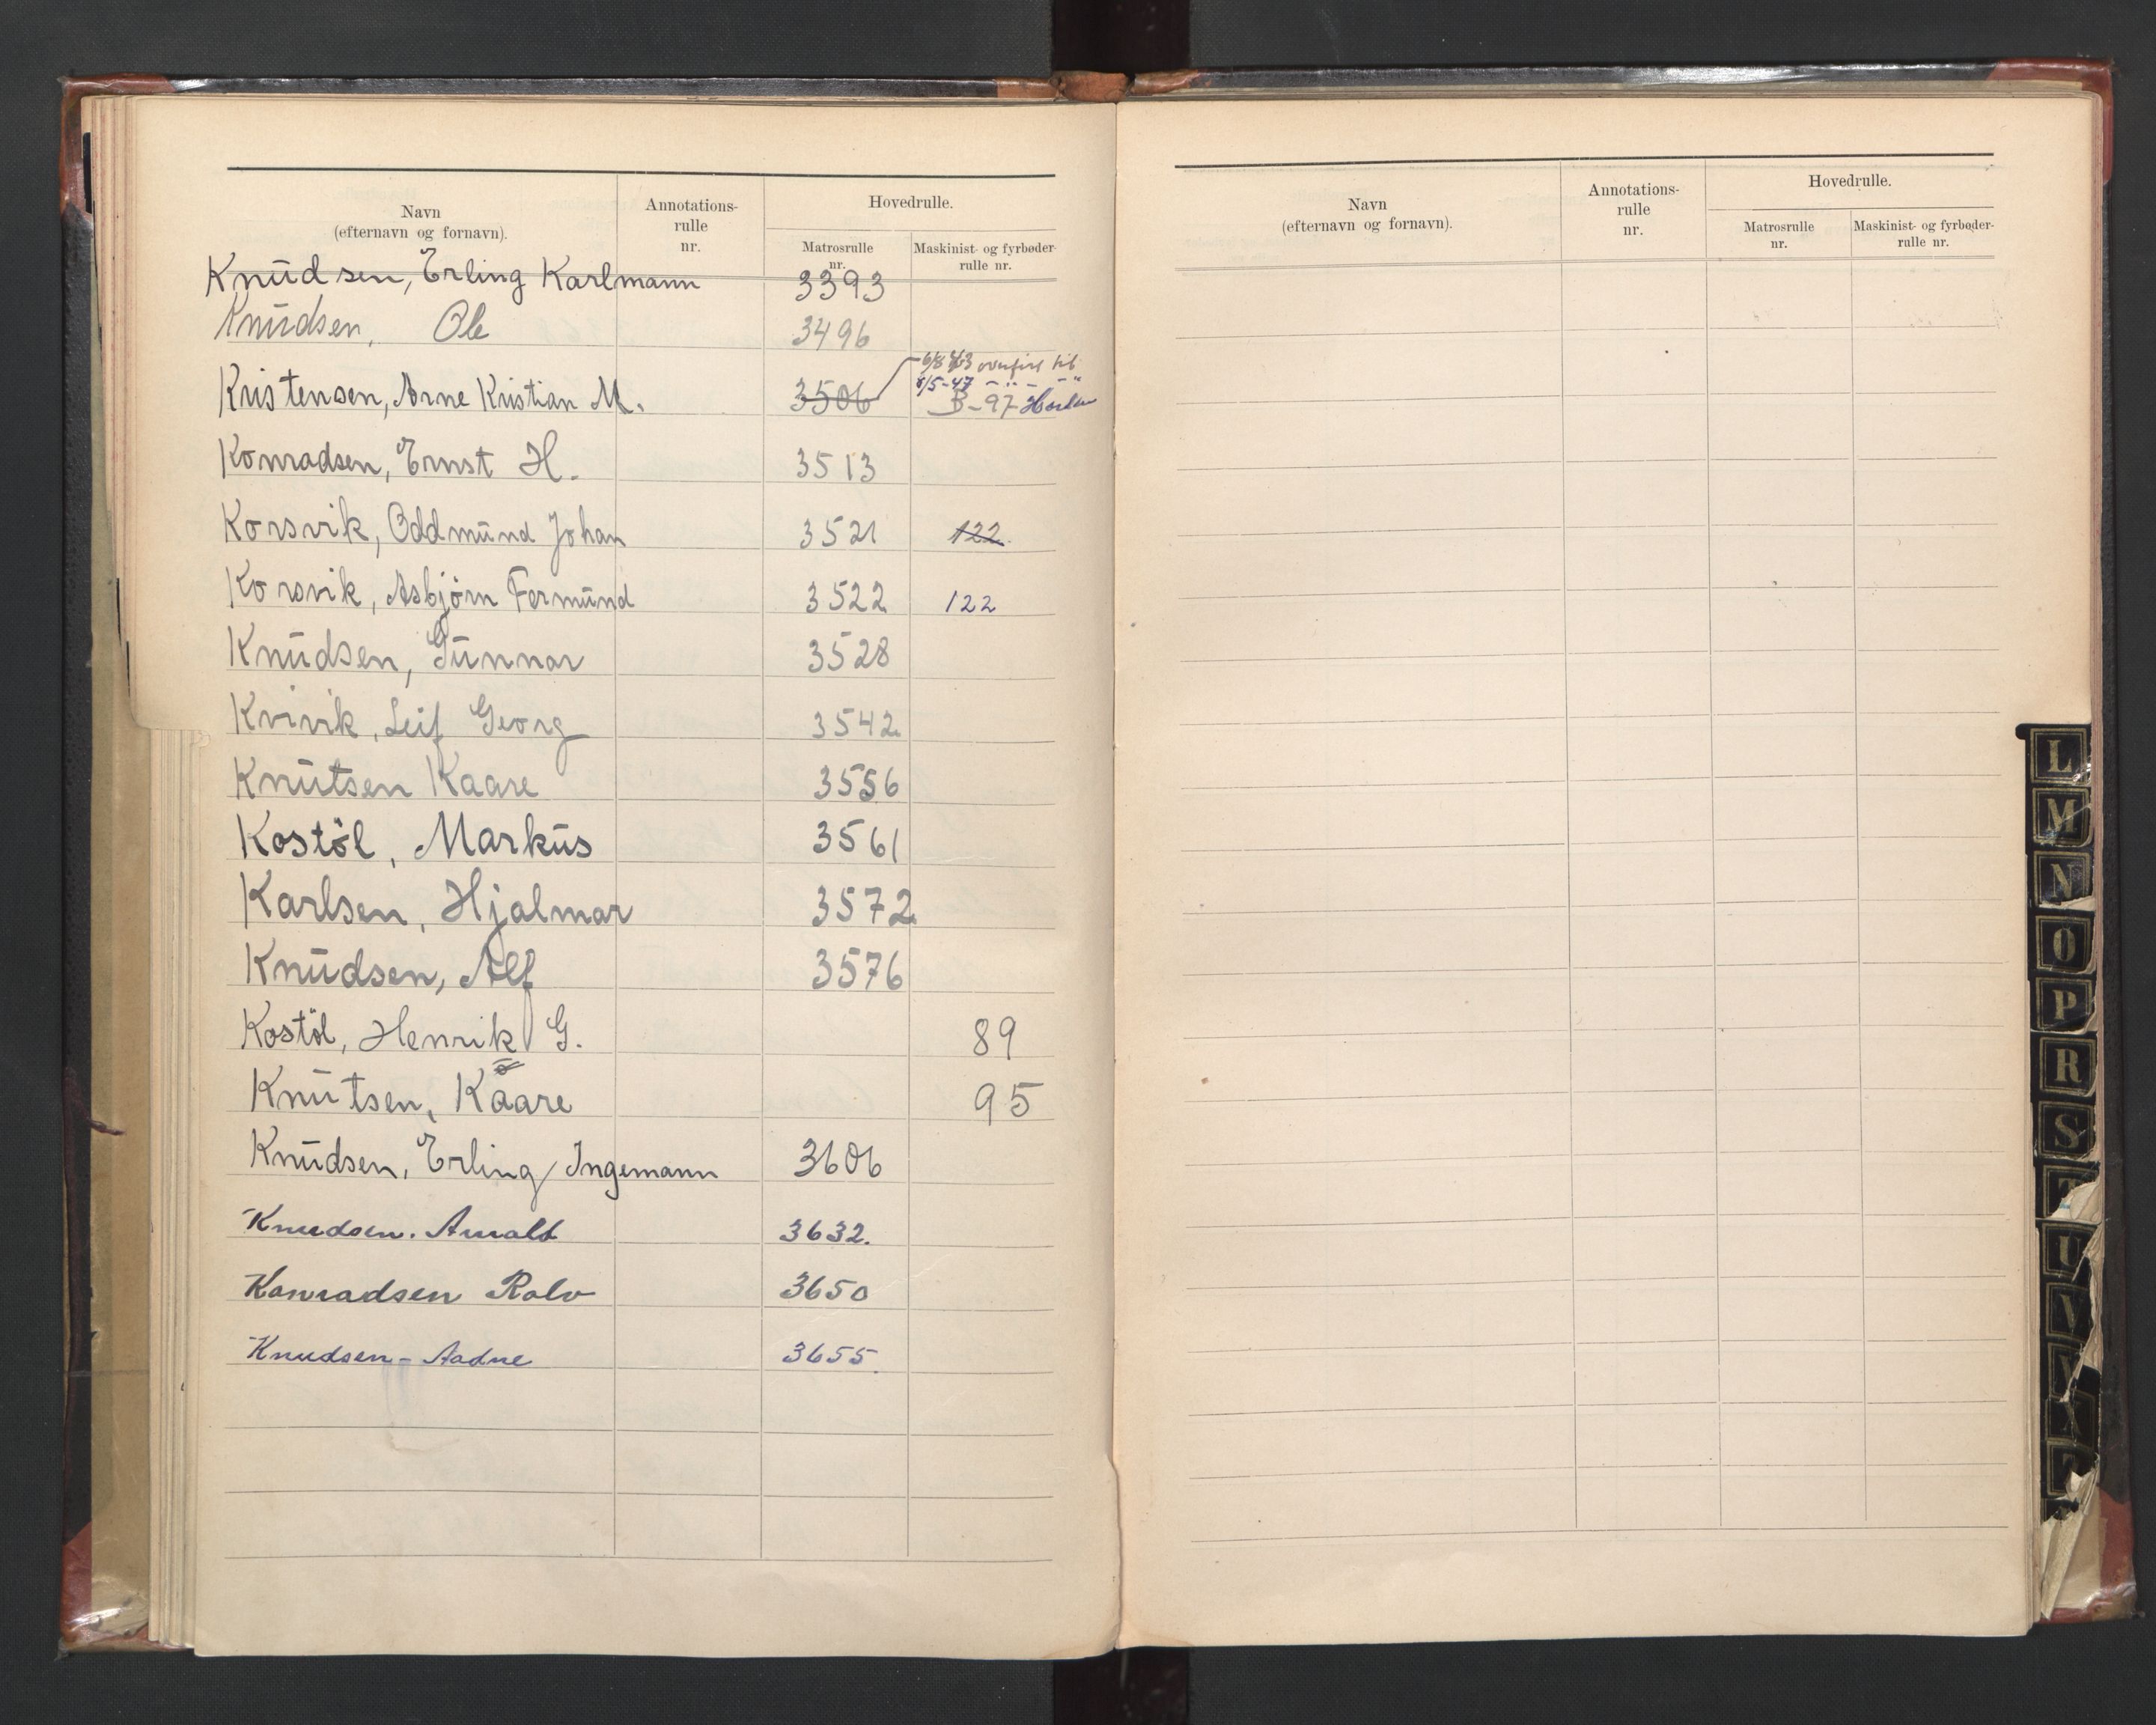 Navn
(efternavn og fornavn).
Annotations-
rulle
nr.
Hovedrulle.
Matrosrulle
nr.
Maskinist- og fyrbøder-
rulle nr.
Knudsen, Erling Karlmann 3393
Knudsen, Ole 3496
6/8 43 overført til
8/5-47 - " - - "
Kristensen, Arne Kristian M. 3506 B-97 Horten
Konradsen, Ernst H. 3513
Korsvik, Oddmund Johan 3521 122
Korsvik, Asbjörn Fermund 3522 122
Knudsen, Gunnar 3528
Kvivik, Leif Georg 3542
Knutsen Kaare 3556
Kostöl, Markus 3561
Karlsen, Hjalmar 3572
Knudsen, Alf 3576
Kostöl, Henrik G. 89
Knutsen, Kaare 95
Knudsen, Erling Ingemann 3606
Knudsen. Arnald 3632.
Konradsen Rolv 3650
Knudsen - Aadne 3655.
Navn
(efternavn og fornavn).
Annotations-
rulle
nr.
Hovedrulle.
Matrosrulle
nr.
Maskinist- og fyrbøder-
rulle nr.
L
M
N
O
P
R
S
T
U
V